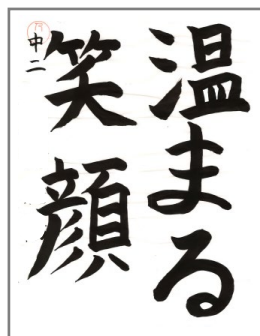 温まる
笑顔
中二